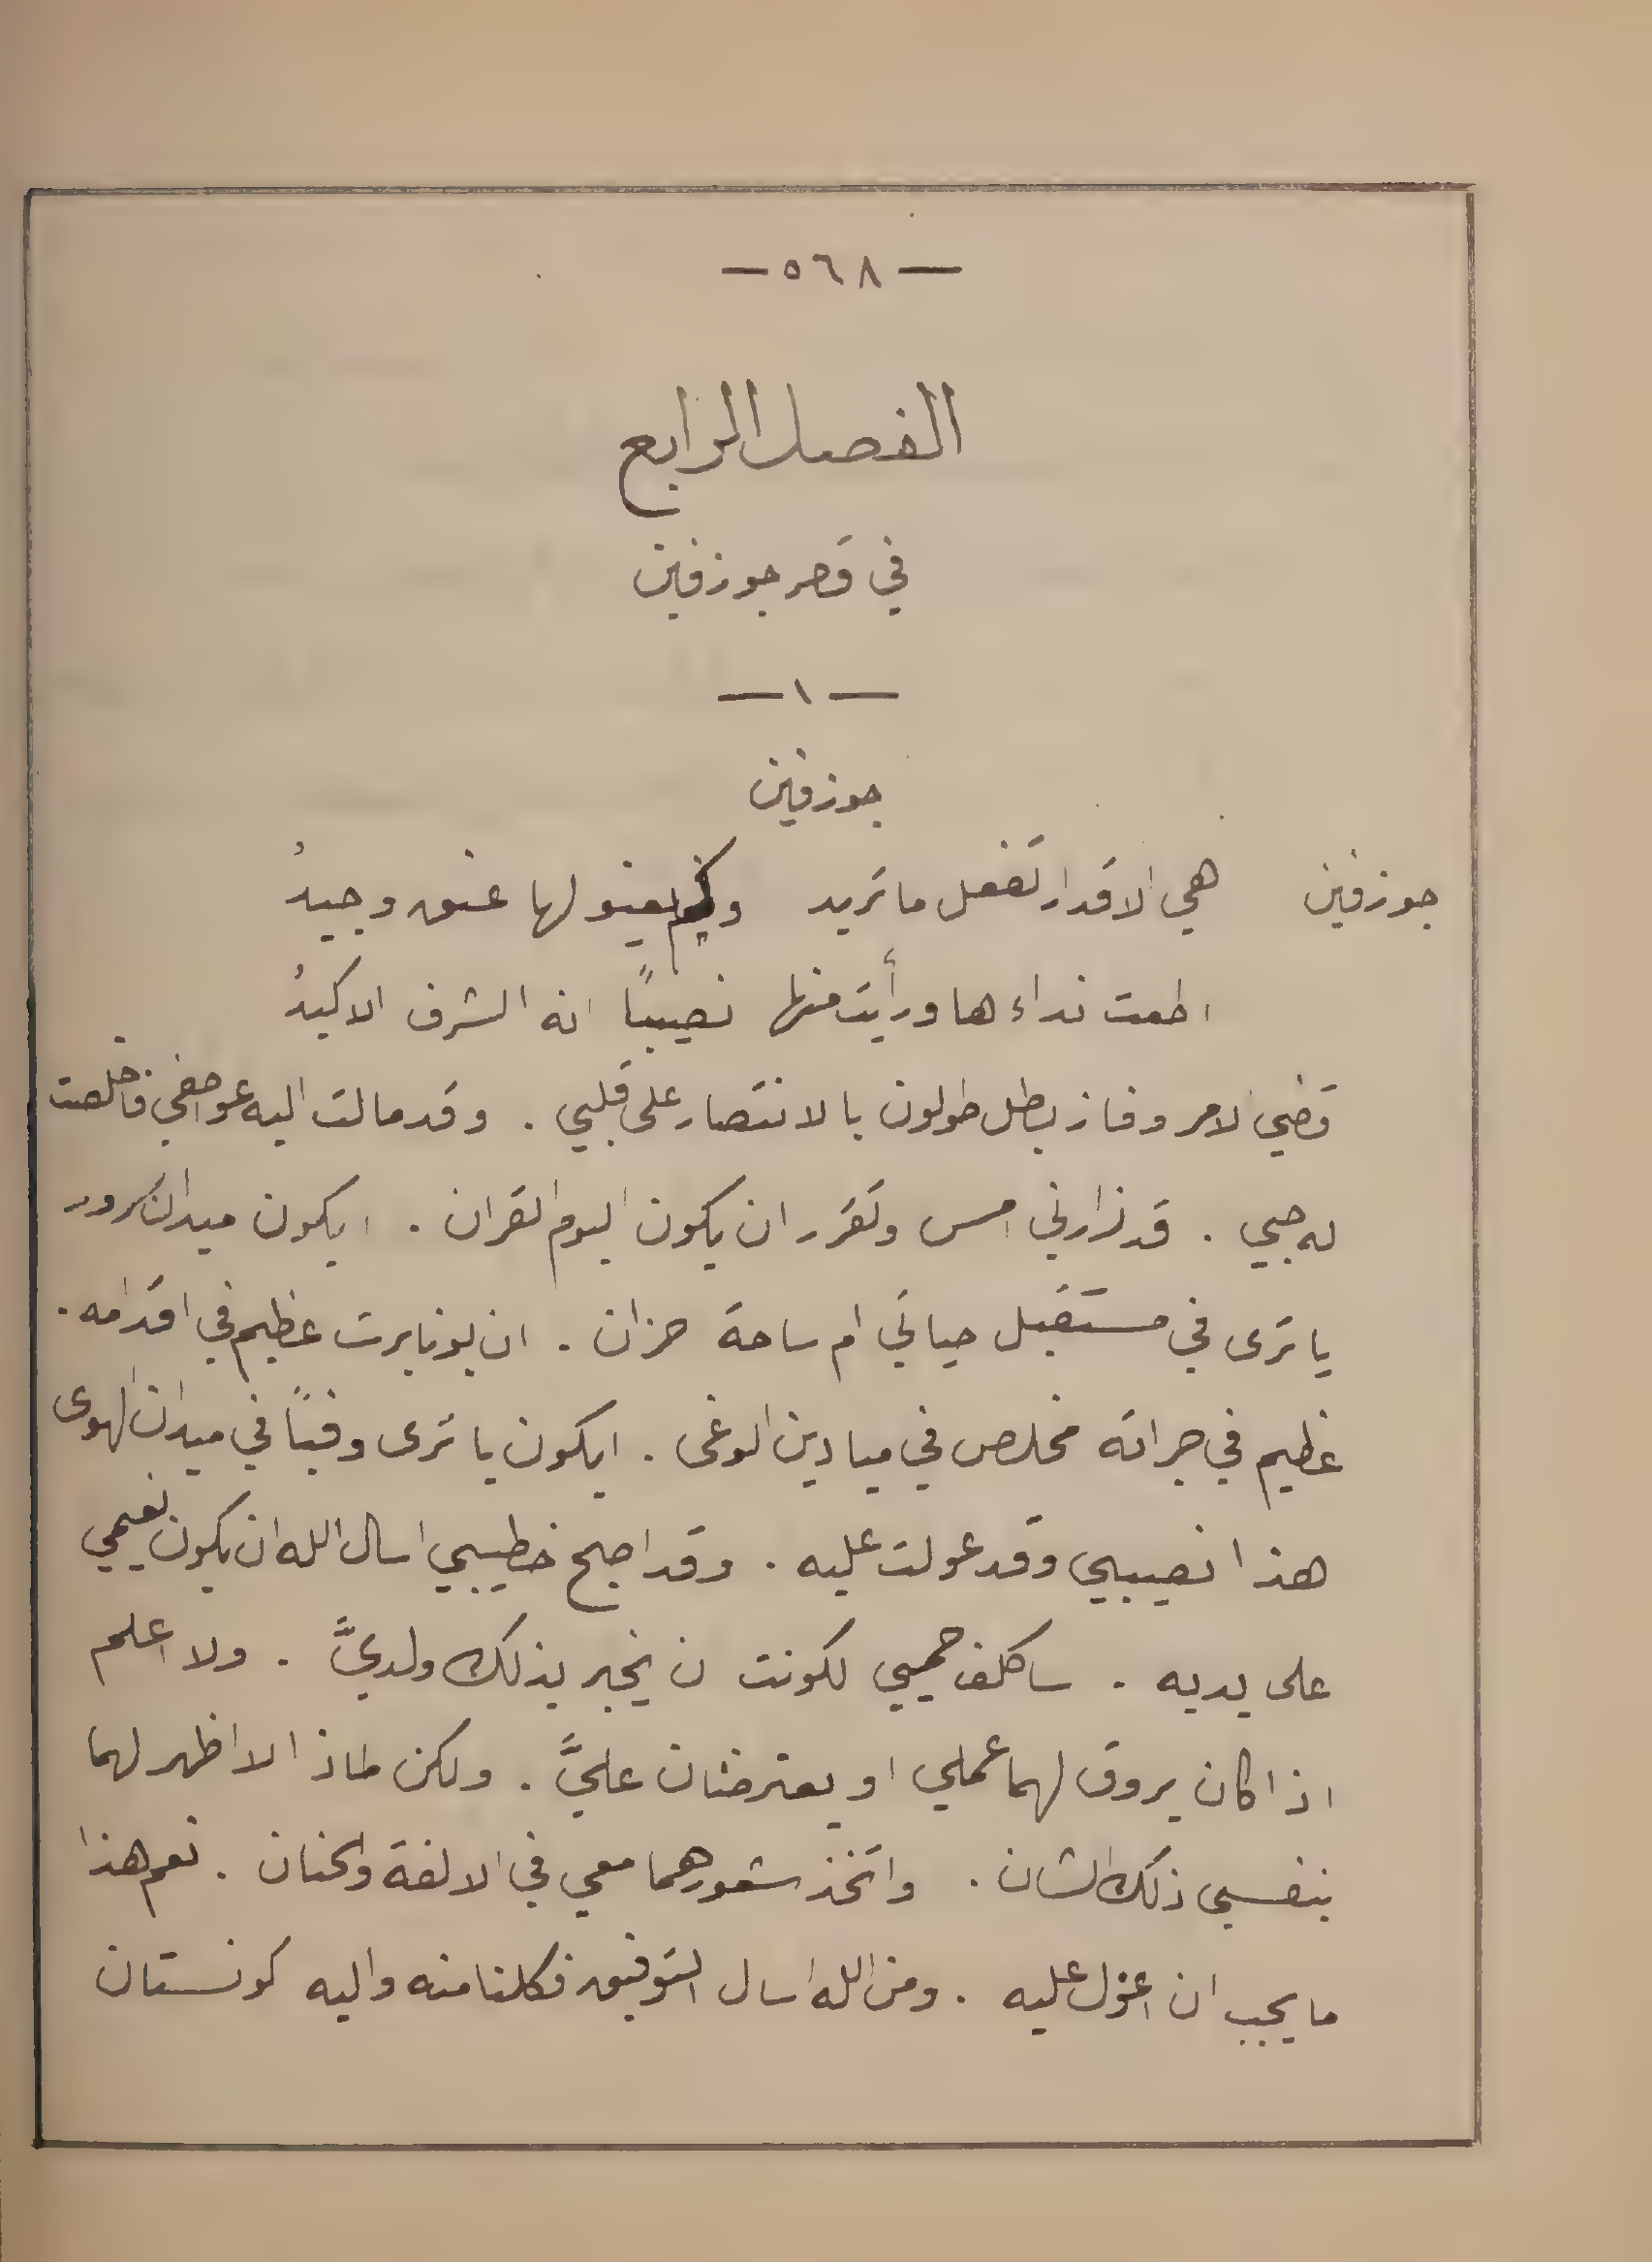 — ٥٦٨ —
الفصل الرابع
في قصر جوزفين
— ١ —
جوزفين
جوزفين هي الاقدار تفعل ما تريد وكم يعنو لها عنق وجيدُ
اطعت نداءها ورأيت منها نصيبًا انه الشرف الاكيدُ
قضي الامر وفاز بطل طولون بالانتصار على قلبي . وقد مالت اليه عواطفي فاخلصت
له حبي . قد زارني امس وتقرر ان يكون اليوم القران . ايكون ميدان سرور
يا ترى في مستقبل حياتي ام ساحة احزان . ان بونابرت عظيم في اقدامه .
عظيم في جراته مخلص في ميادين الوغى . ايكون يا ترى وفيًا في ميدان الهوى
هذا نصيبي وقد عولت عليه . وقد اصبح خطيبي اسال الله ان يكون نعيمي
على يديه . ساكلف حميي لكونت ان يخبر بذلك ولديَّ . ولا اعلم
اذا كان يروق لهما عملي او يعترضان عليَّ . ولكن لماذا لا اظهر لهما
بنفسي ذلك الشان . واتخذ شعورهما معي في الالفة والحنان . نعم هذا
ما يجب ان اعول عليه . ومن الله اسال التوفيق فكلنا منه واليه كونستان